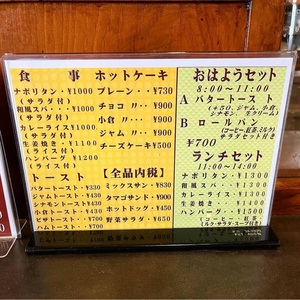 食事
ナポリタン・¥1000
(サラダ付)
和風スパ・・¥1000
(サラダ付)
カレーライス・¥1000
(サラダ付)
生姜焼き・・¥1100
(ライス付)
ハンバーグ・¥1200
(ライス付)
トースト
バタートースト・¥330
ジャムトースト・¥430
シナモントースト・¥430
小倉トースト・¥430
ピザトースト・¥
ハムトースト・¥
ホットケーキ
プレーン・・¥730
チョコ 〃・・¥900
小倉 〃・・¥900
ジャム 〃・・¥900
チーズケーキ¥500
【全品内税】
ミックスサン・¥830
タマゴサンド・¥900
ホットドッグ・¥450
野菜サラダ・¥650
おはようセット
8:00～11:00
A バタートースト
(+50、ジャム、小倉、
シナモン、生クリーム)
B ロールパン
(コーヒー、紅茶、ミルク)
サラダセット付き
¥700
ランチセット
11:00～
ナポリタン・・¥1300
和風スパ・・・¥1300
カレーライス・¥1300
生姜焼き・・・¥1400
ハンバーグ・・¥1500
(コーヒー、紅茶・
ミルク・サラダ・スープ付き)